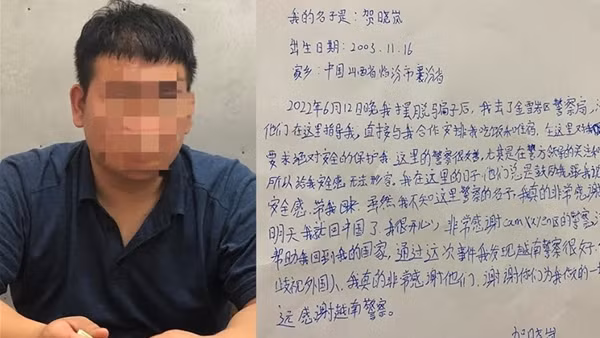 我的名子是：贺晓岚
出生日期：2005.11.16
家乡：中国山西省临汾市襄汾
2022年6月12日晚我摆脱骗子后，我去了金瓯区警察局，
他们在这里指导我，直接与我合作安排我吃饭和住宿，在这里
要求绝对安全的保护我 这里的警察很友善，尤其是在警方领导的关注和
所以给我安全感 无法形容，我在这里的日子他们总是
安全感，带我 虽然我不知这里警察的名子，我真的非常感谢
明天我就回中国了，我很开心，非常感谢 的警察
帮助我回到我的国家，通过这次事件我发现越南警察很好
歧视外国人，我真的非常感谢他们，谢谢你们为我做的一
远感谢越南警察。
贺晓岚